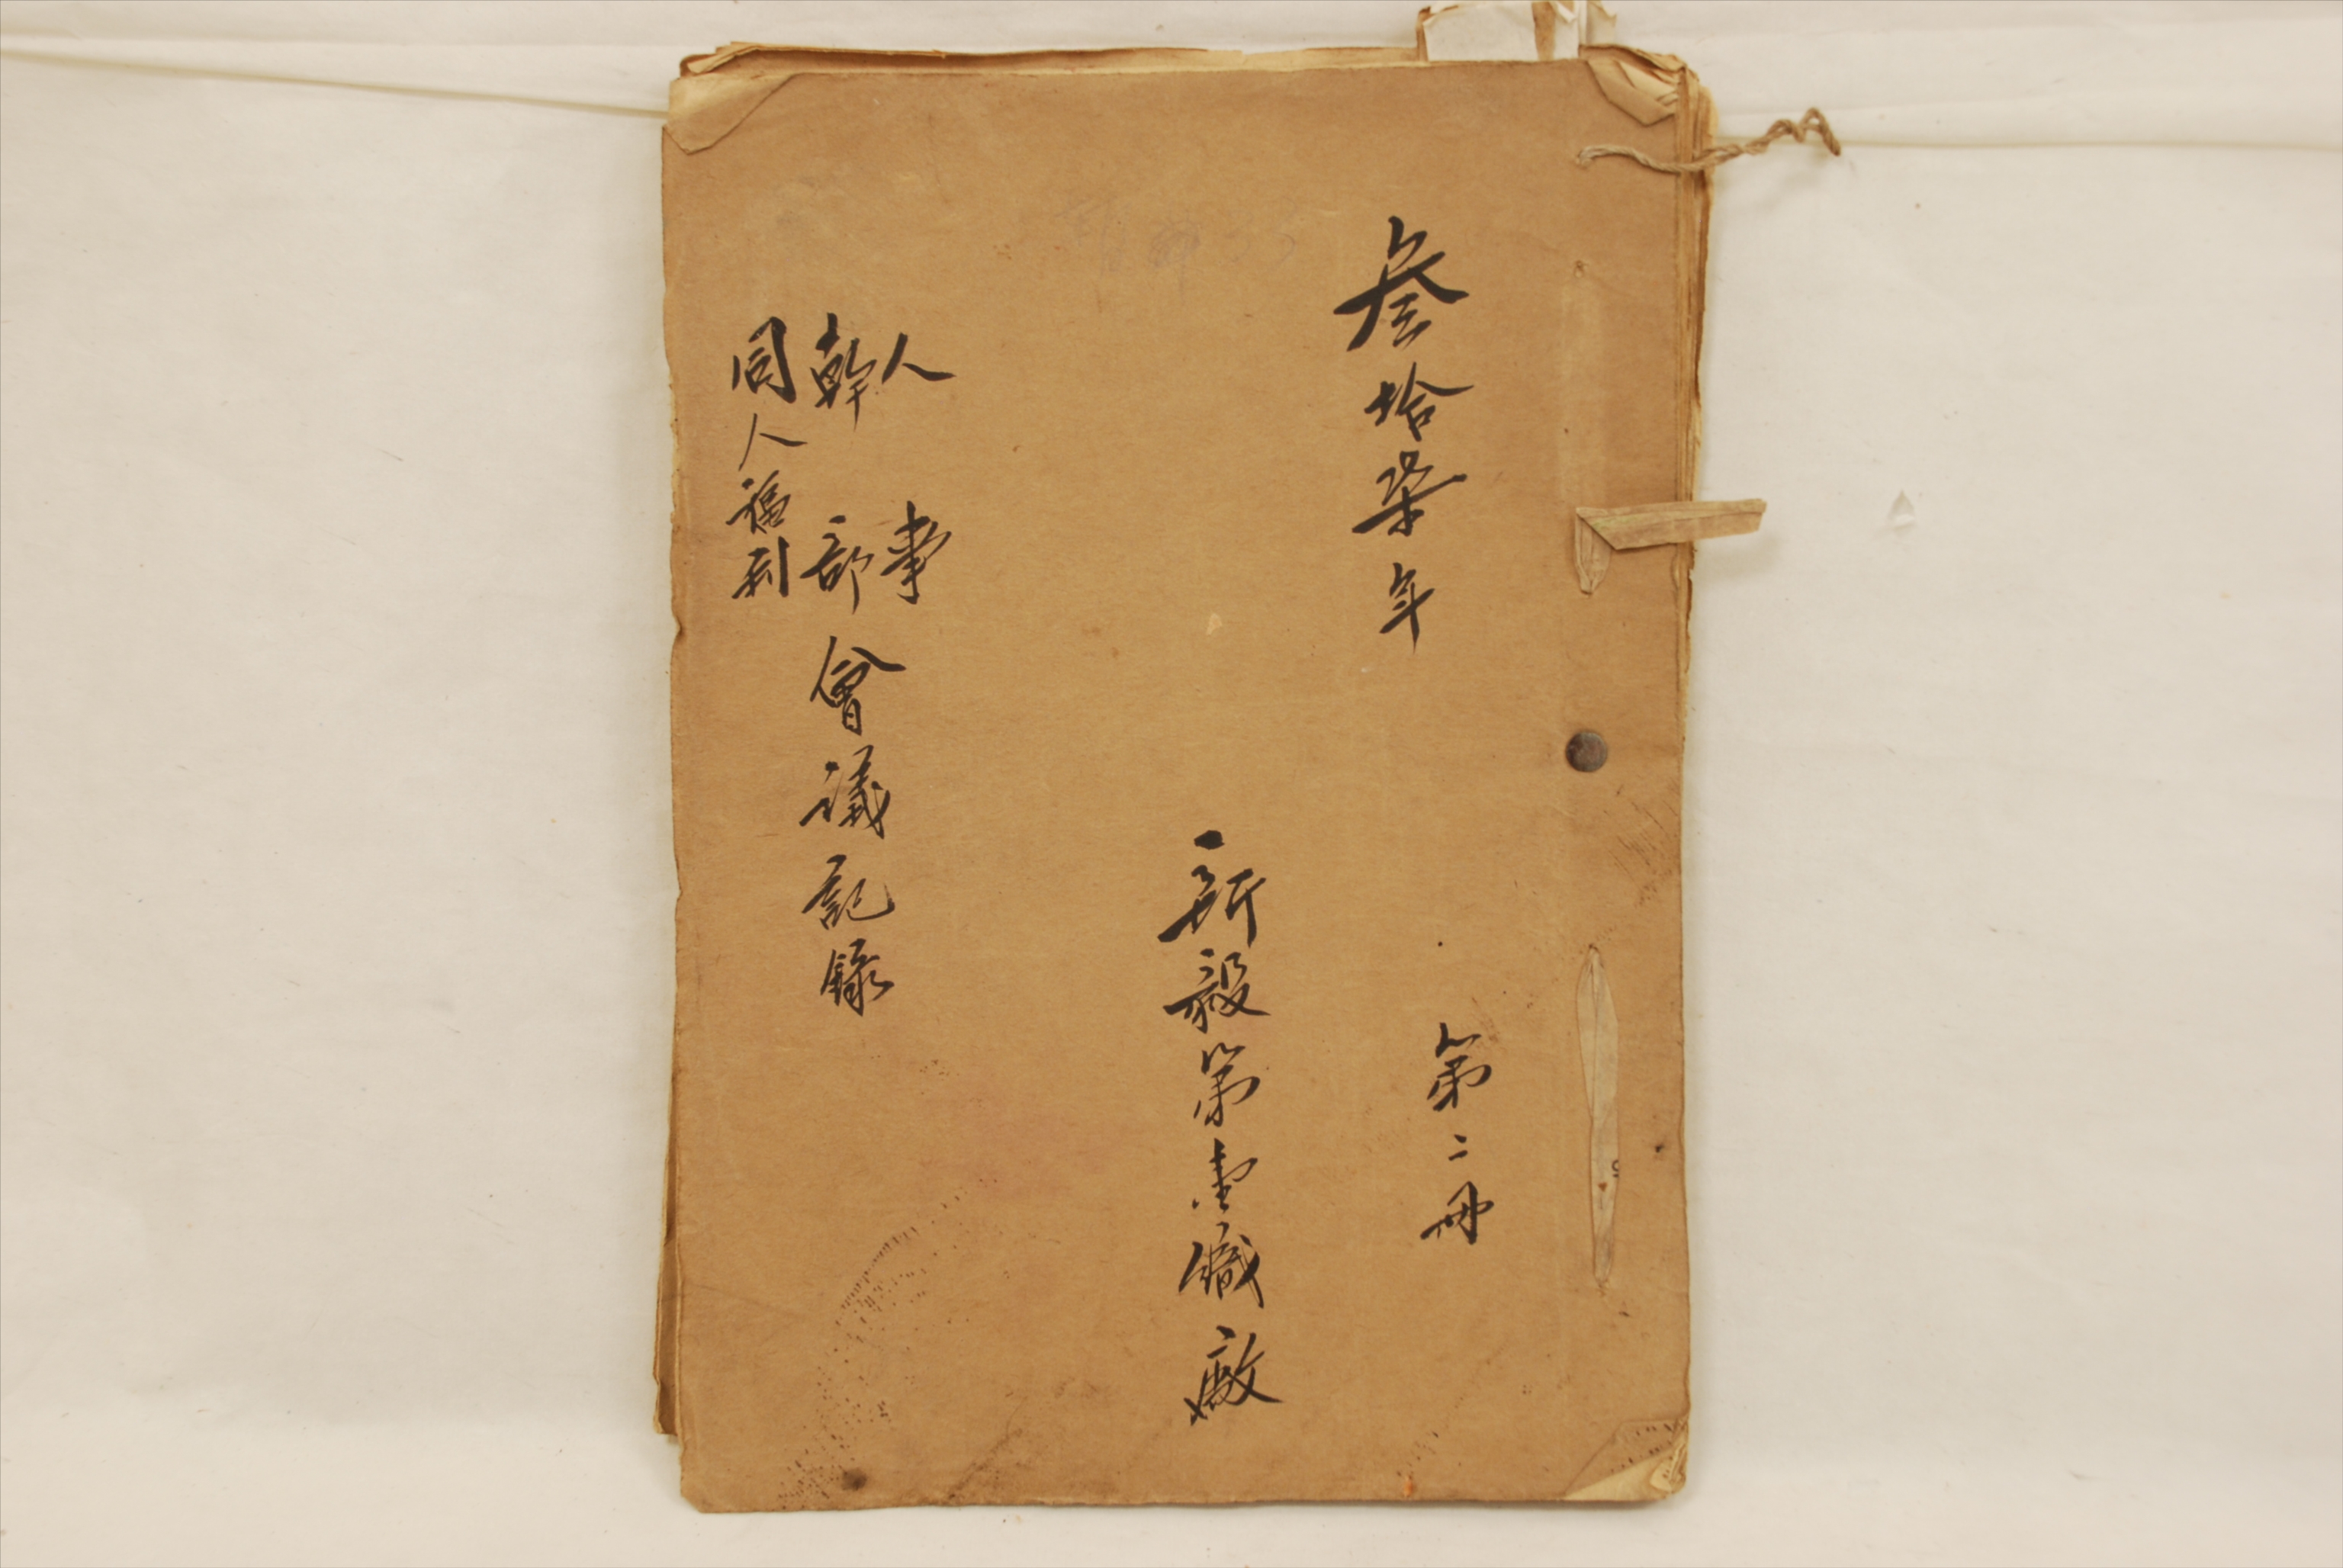 叁拾柒年
第二冊
新毅第壹鐵廠
人事
幹部
同人福利
會議記錄